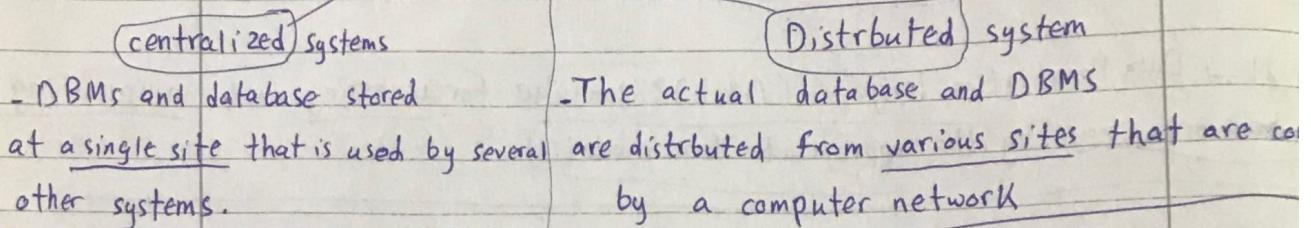 centralized systems
- DBMS and database stored
at a single site that is used by several
other systems.
Distrbuted system
- The actual database and DBMS
are distrbuted from various sites that are
by a computer network